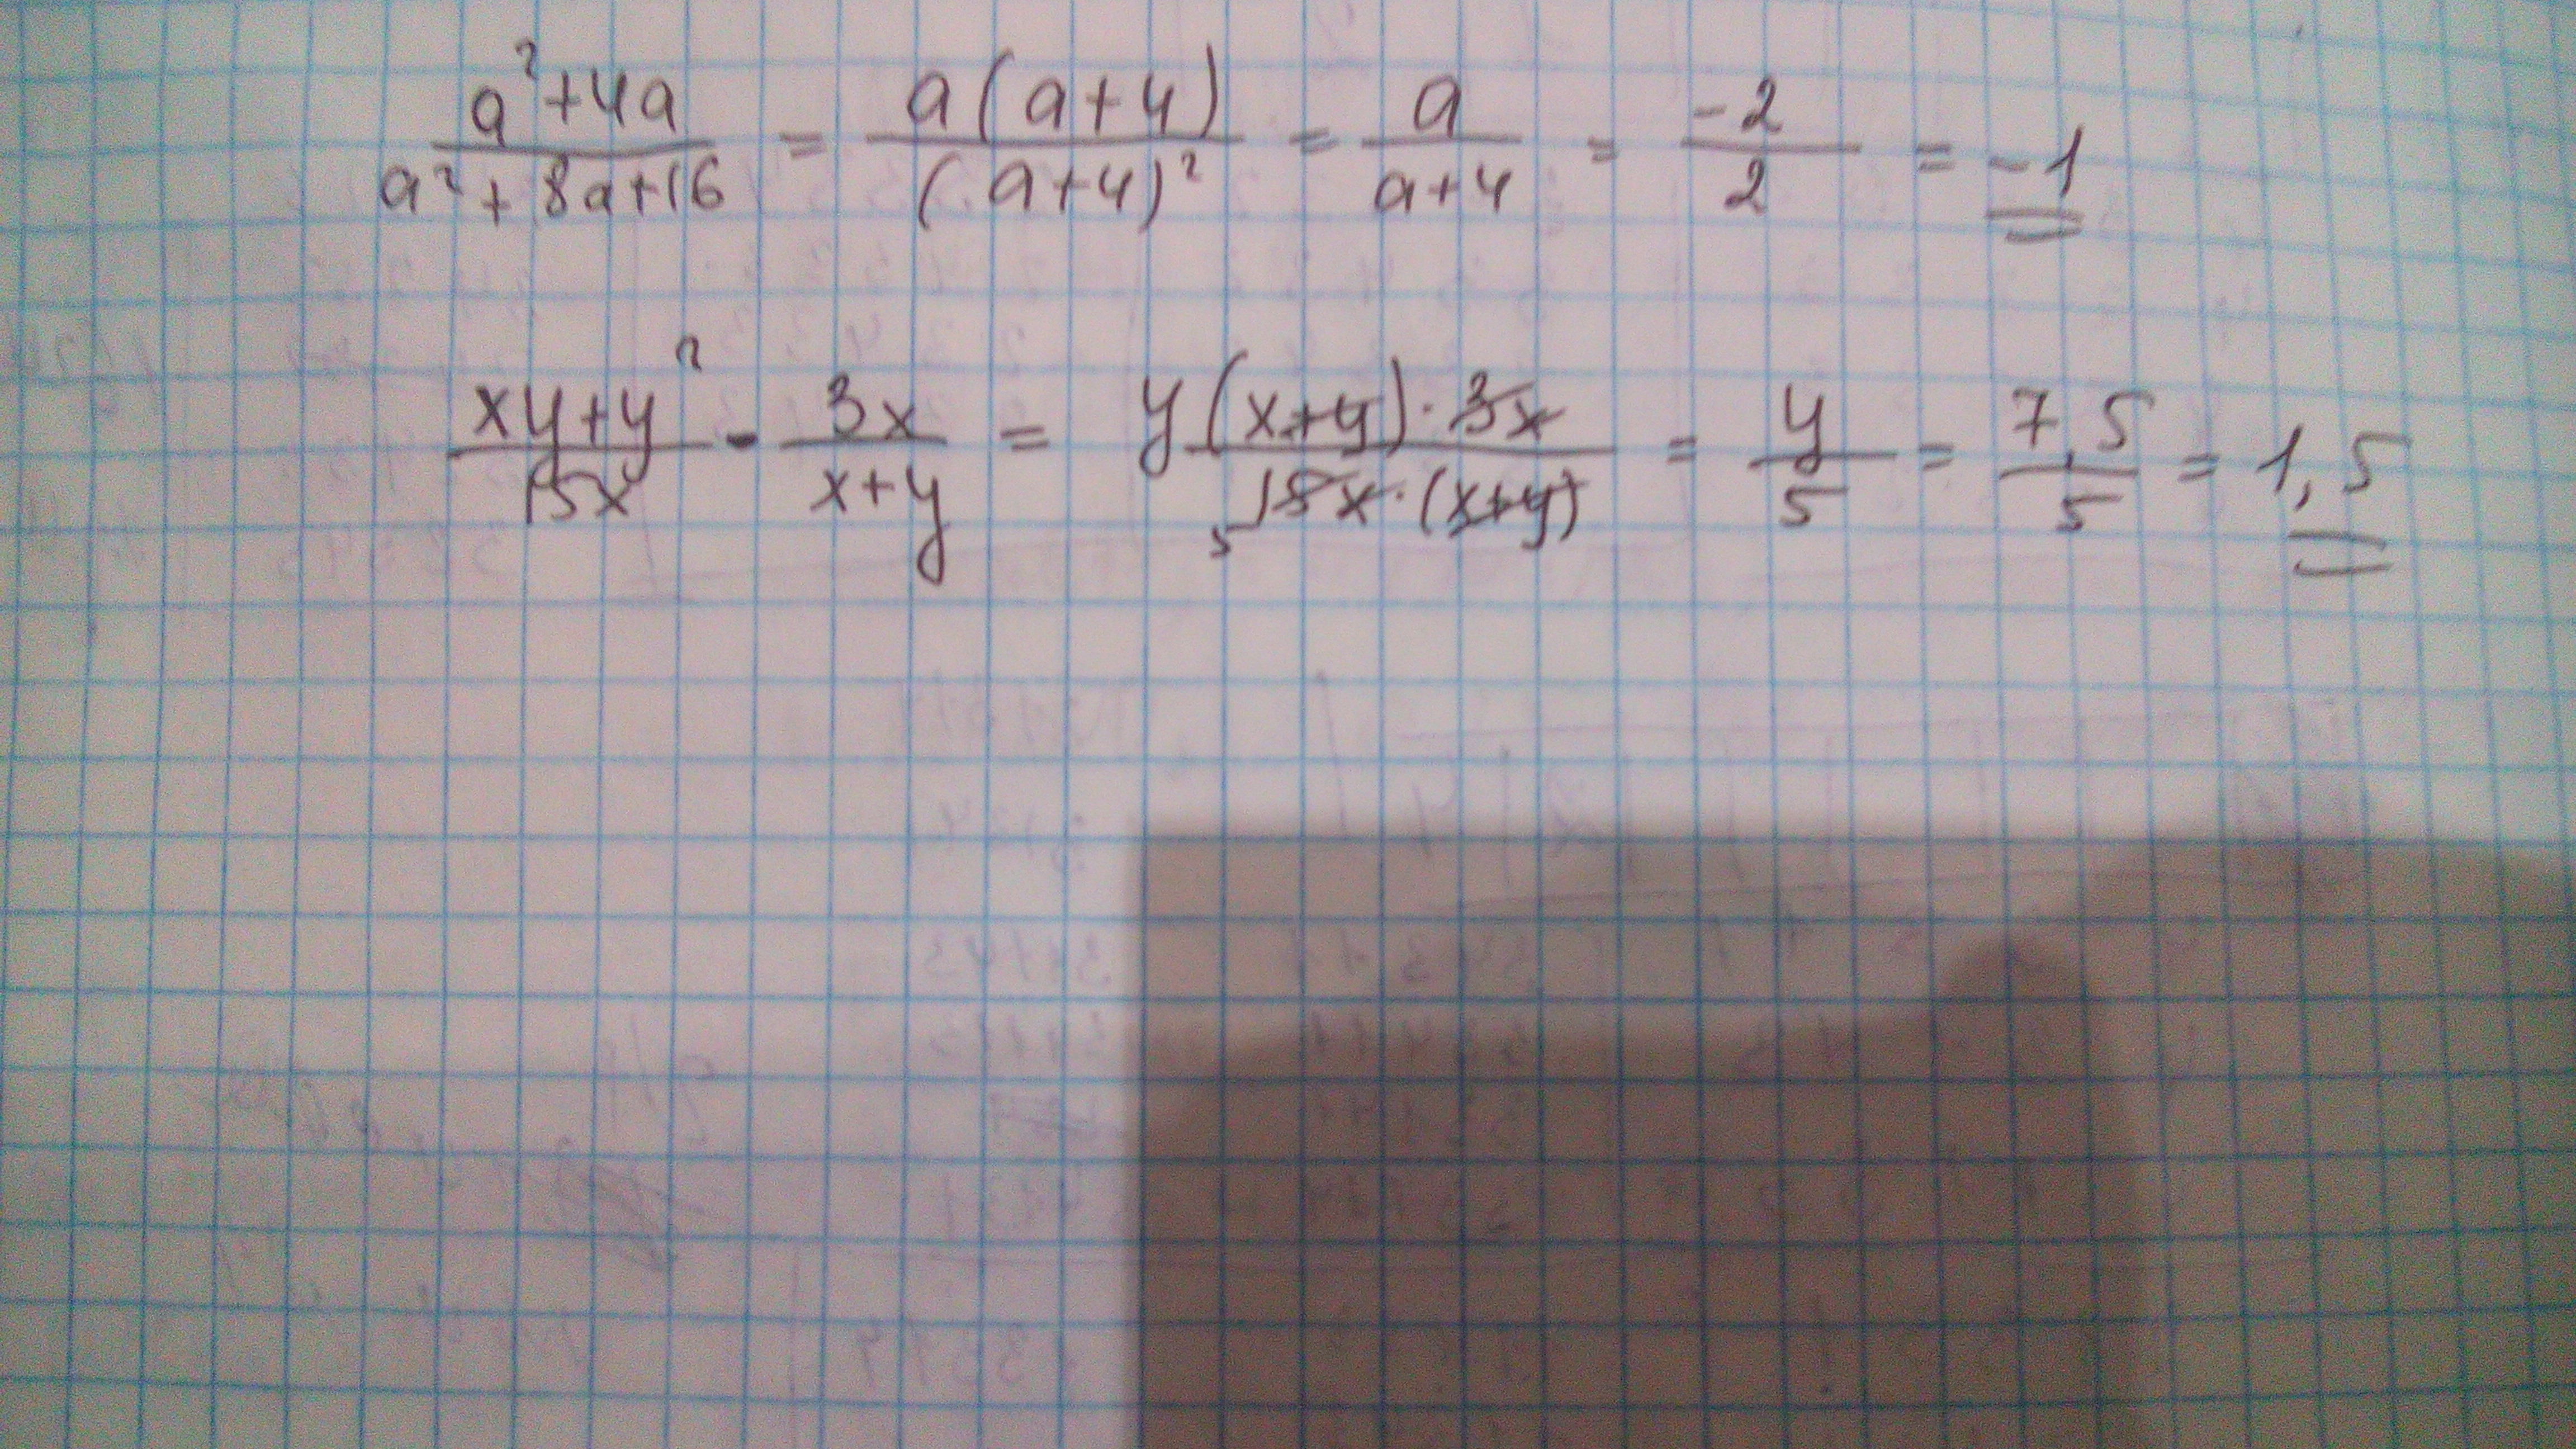 a²+4a / a²+8a+16 = a(a+4) / (a+4)² = a / a+4 = -2 / 2 = -1
xy+y² / 15x · 3x / x+y = y(x+y)·3x / 15x·(x+y) 5 = y / 5 = 7,5 / 5 = 1,5